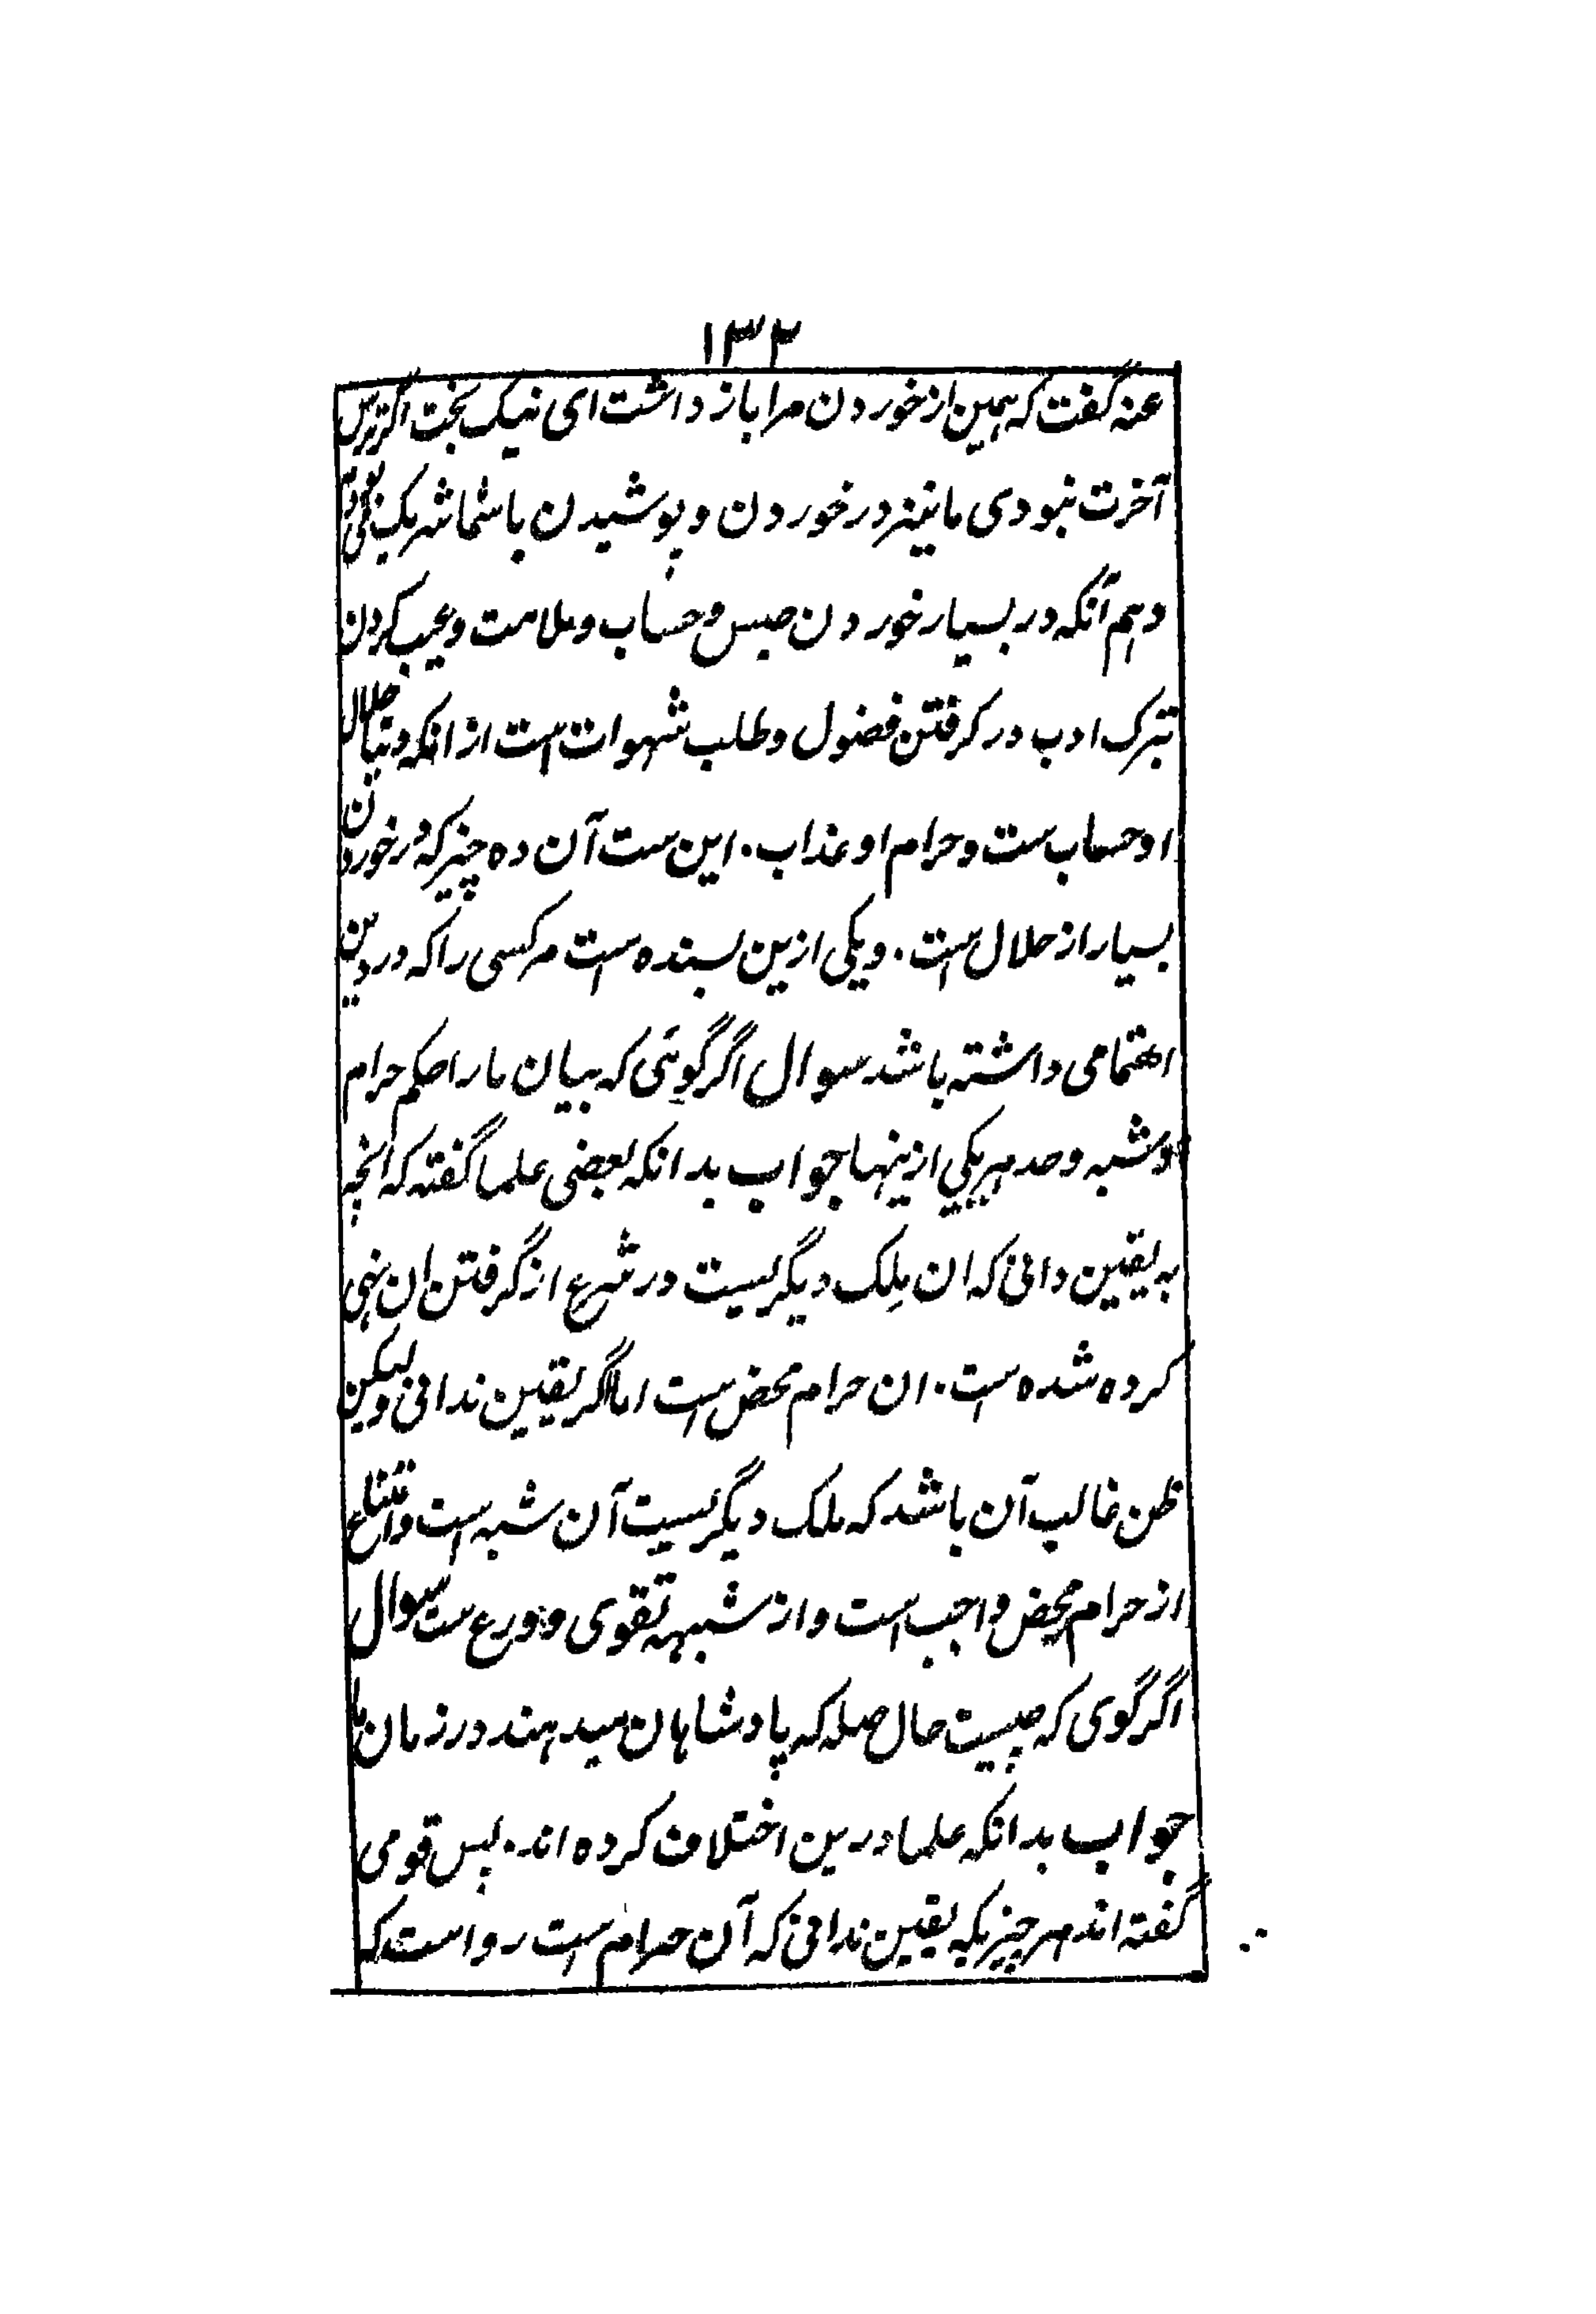 ۱۳۲
عنه گفت که همین از خوردن مرا باز داشت ای نیک بخت اگر ترس
آخرت نبودی ما نیز در خوردن و پوشیدن با شما شریک
دهم آنکه در بسیار خوردن حبس و حساب و ملامت و عیب کردن
بترک ادب در کرفتن فضول و طلب شهوات است از انکه دنیا حلال
او حساب ست و حرام او عذاب. این ست آن ده چیز که در خوردن
بسیار از حلال است. و یکی ازین بسنده است مر کسی را که در دین
اهتمامی داشته باشد سوال اگر گوئی که بیان ما را حکم حرام
و شبه و حد هر یکی ازینها جواب بدانکه بعضی علما گفته که انچه
به یقین دانی که ان ملک دیگریست در شرع از گرفتن ان نهی
کرده شده است. ان حرام محض است اما اگر یقین ندانی ولیکن
ظن غالب آن باشد که ملک دیگریست آن شبه است و امتناع
از حرام محض واجب است و از شبهه تقوی و ورع ست سوال
اگر گوی که چیست حال صله که پادشاهان میدهند در زمان ما
جواب بدانکه علما درین اختلاف کرده اند. پس قومی
گفته اند هر چیزیکه یقین ندانی که آن حرام است رواست که